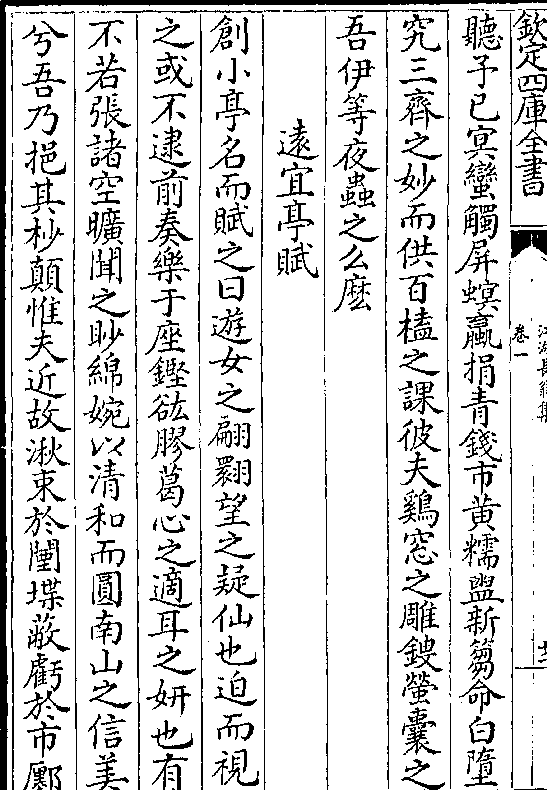 欽定四庫全書
江湖長翁集
卷一
十二
聽予已㝠蠻觸屏螟蠃捐青錢市黄糯盥新篘命白墮
究三齊之妙而供百榼之課彼夫鷄窓之雕鎪螢囊之
吾伊等夜蟲之么麽
逺宜亭賦
創小亭名而賦之曰遊女之翩翾望之疑仙也迫而視
之或不逮前奏樂于座鏗鈜膠葛心之適耳之妍也有
不若張諸空曠聞之眇綿婉以清和而圓南山之信美
兮吾乃挹其杪顛惟夫近故湫束於闉堞蔽虧於市鄽